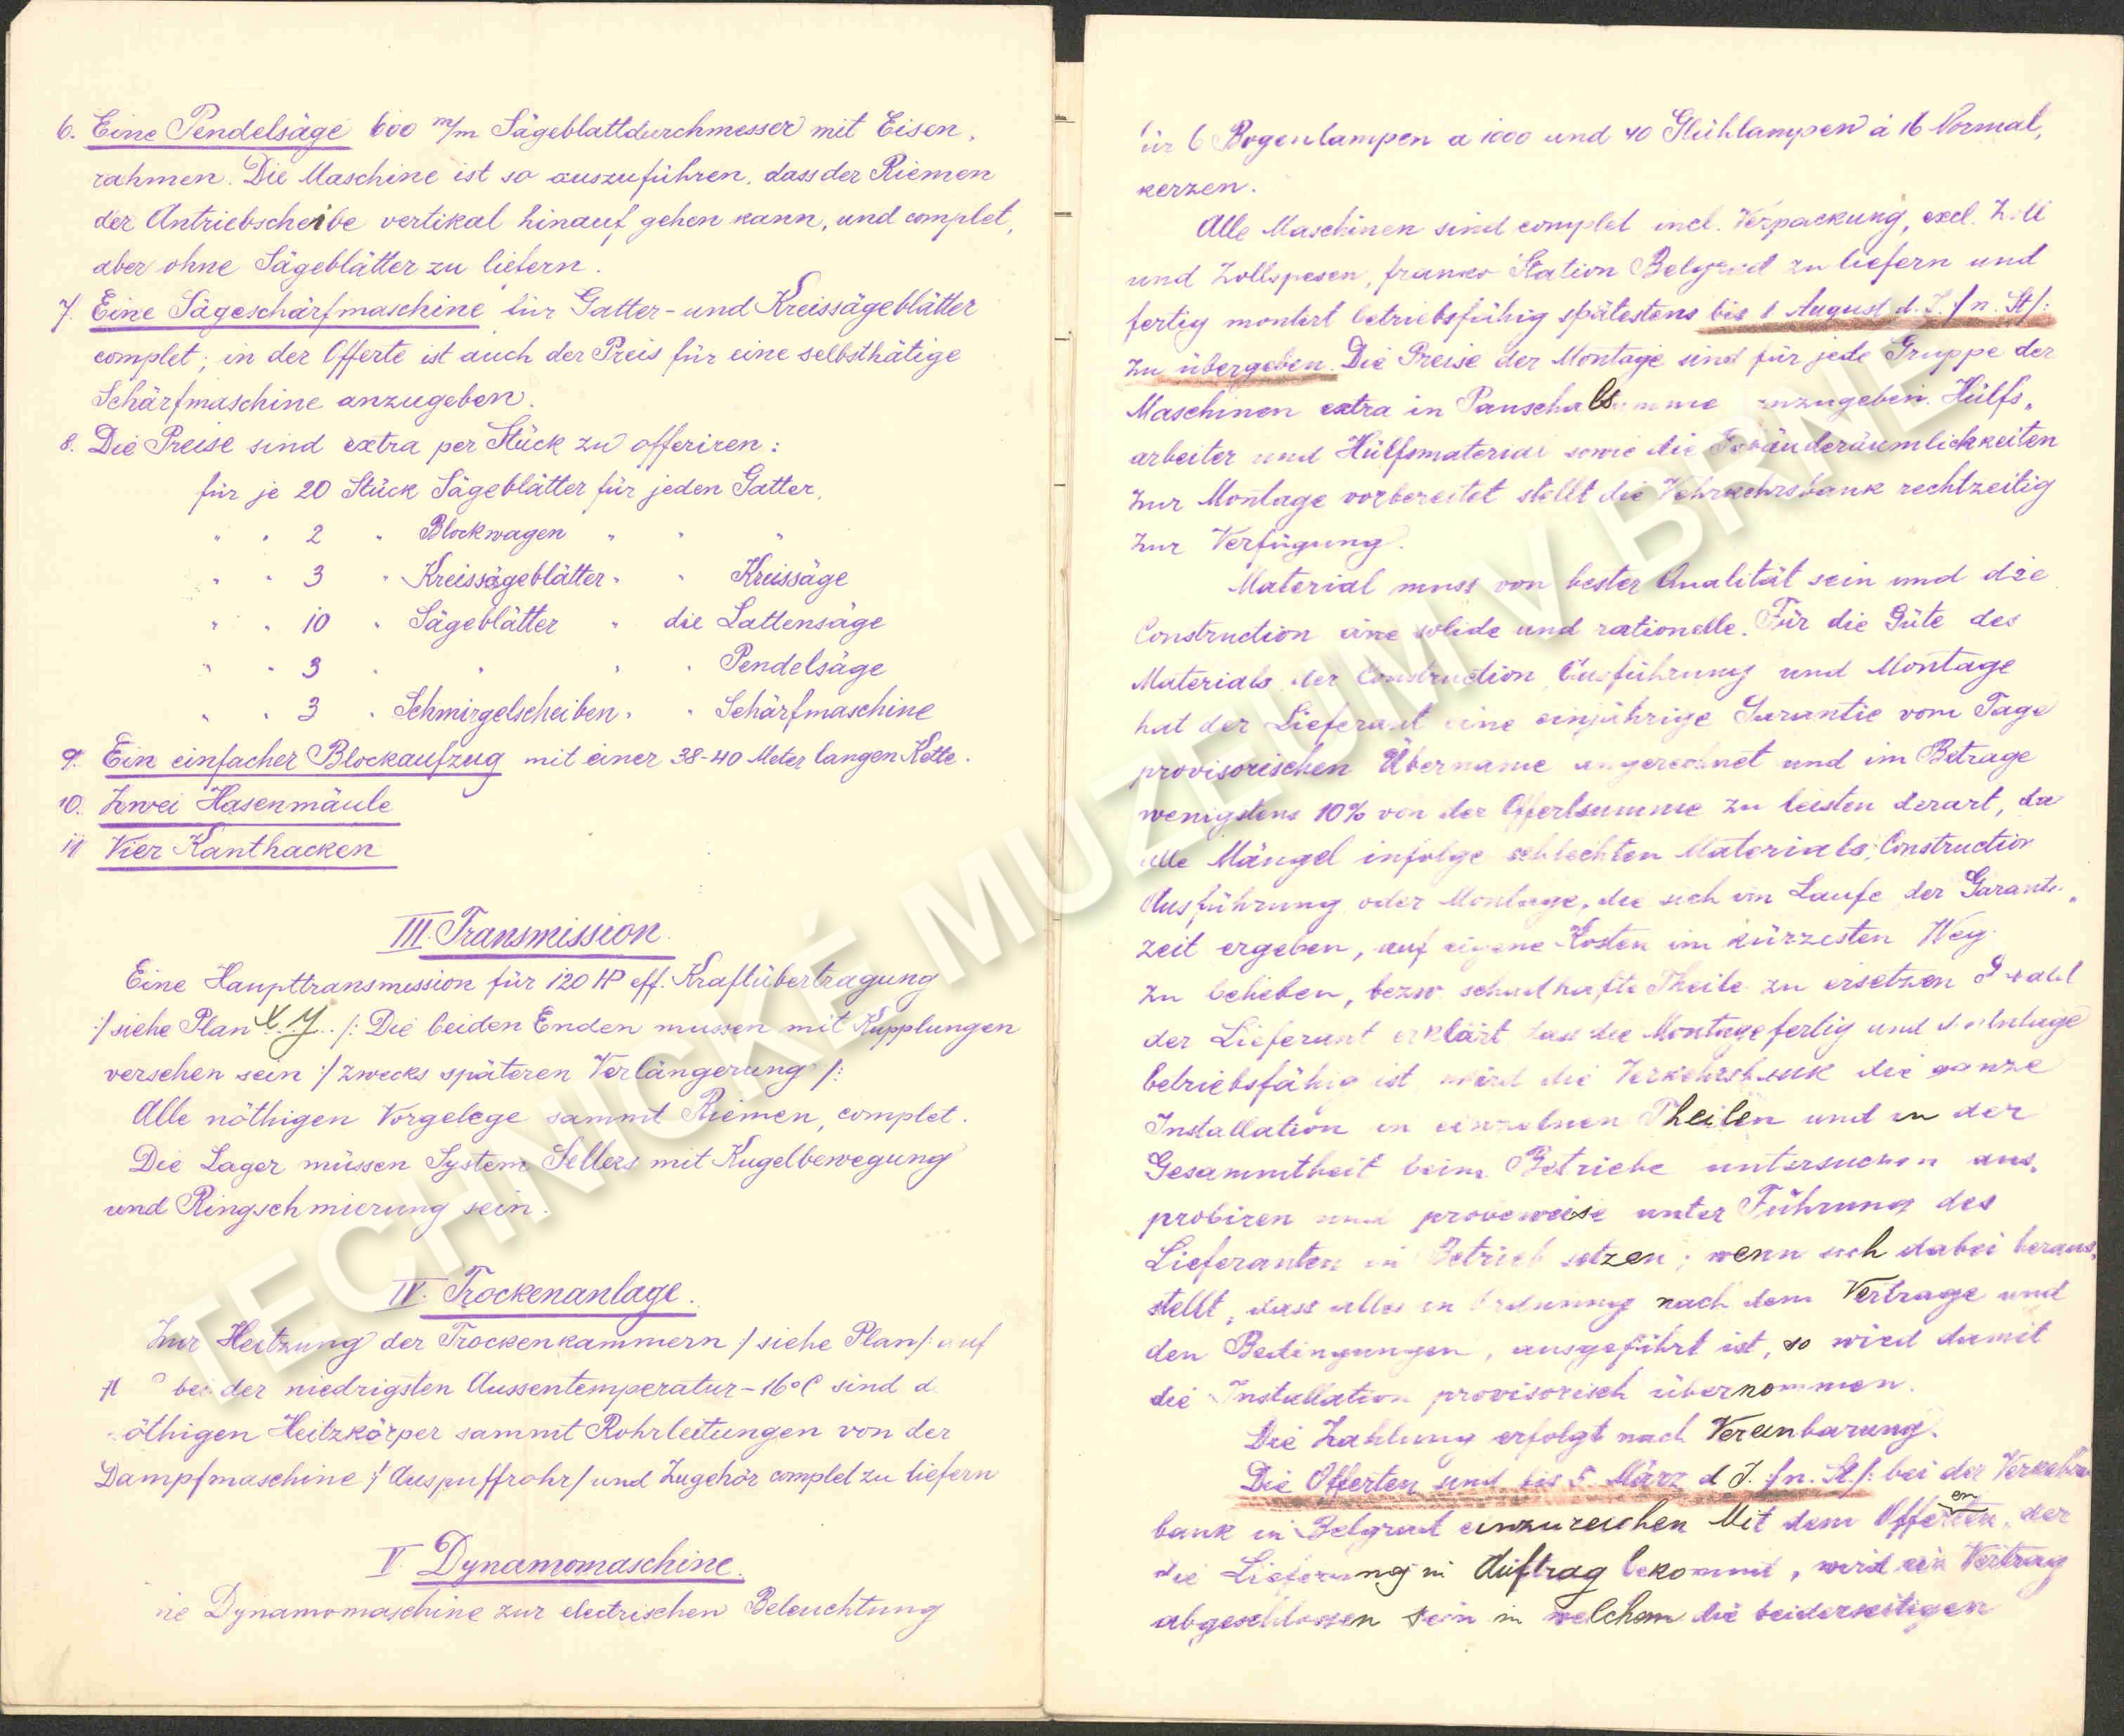 6. Eine Pendelsäge 600 m/m Sägeblattdurchmesser mit Eisen,
rahmen. Die Maschine ist so auszuführen, dass der Riemen
der Antriebscheibe vertikal hinauf gehen kann, und complet,
aber ohne Sägeblätter zu liefern.
7. Eine Sägeschärfmaschine für Gatter- und Kreissägeblätter
complet; in der Offerte ist auch der Preis für eine selbsthätige
Schärfmaschine anzugeben.
8. Die Preise sind extra per Stück zu offeriren:
für je 20 Stück Sägeblätter für jeden Gatter,
" " 2 " Blockwagen " " "
" " 3 " Kreissägeblätter " " Kreissäge
" " 10 " Sägeblätter " die Lattensäge
" " 3 " " " " Pendelsäge
" " 3 " Schmirgelscheiben " " Schärfmaschine
9. Ein einfacher Blockaufzug mit einer 38-40 Meter langen Kette.
10. Zwei Hasenmäule
11 Vier Kanthacken
III. Transmission.
Eine Haupttransmission für 120 HP eff. Kraftübertragung
:/ siehe Plan X. Y. /: Die beiden Enden mussen mit Kupplungen
versehen sein :/ zwecks späteren Verlängerung /:
Alle nöthigen Vorgelege sammt Riemen, complet.
Die Lager müssen System Sellers mit Kugelbewegung
und Ringschmierung sein.
IV. Trockenanlage.
Zur Heitzung der Trockenkammern :/ siehe Plan /: auf
bei der niedrigsten Aussentemperatur -16°C sind d
öthigen Heitzkörper sammt Rohrleitungen von der
Dampfmaschine :/ Auspuffrohr / und Zugehör complet zu liefern
V. Dynamomaschine.
ne Dynamomaschine zur electrischen Beleuchtung
für 6 Bogenlampen a 1000 und 40 Glühlampen à 16 Normal,
kerzen.
Alle Maschinen sind complet incl. Verpackung, excl. Zoll
und Zollspesen, franko Station Belgrad zu liefern und
fertig montirt betriebsfähig spätestens bis 1 August d. J. :/ n. St /:
zu übergeben. Die Preise der Montage sind für jede Gruppe der
Maschinen extra in Pauschalsumme anzugeben. Hülfs,
arbeiter und Hülfsmaterial sowie die Gebäuderäumlichkeiten
zur Montage vorbereitet stellt die Vehrkehrsbank rechtzeitig
zur Verfügung.
Material muss von bester Qualität sein und die
Construction eine solide und rationelle. Für die Güte des
Materials der Construction Ausführung und Montage
hat der Lieferant eine einjährige Garantie vom Tage
provisorischen Übername angerechnet und im Betrage
wenigstens 10% von der Offertsumme zu leisten derart, da
alle Mängel infolge schlechten Materials, Construction
Ausführung oder Montage, die sich im Laufe der Garantie,
zeit ergeben, auf eigene Kosten im kürzesten Weg
zu beheben, bezw. schadhafte Theile zu ersetzen Sobald
der Lieferant erklärt, dass die Montage fertig und d. Anlage
betriebsfähig ist wird die Verkehrsbank die ganze
Installation in einzelnen Theilen und in der
Gesammtheit beim Betriebe untersuchen aus,
probiren und probeweise unter Führung des
Lieferanten in Betrieb setzen; wenn sich dabei heraus,
stellt, dass alles in Ordnung nach dem Vertrage und
den Bedingungen, ausgeführt ist, so wird damit
die Installation provisorisch übernommen.
Die Zahlung erfolgt nach Vereinbarung.
Die Offerten sind bis 5 März d J. :/ n. St. /: bei der Verkehrs
bank in Belgrad einzureichen Mit dem Offerenten, der
die Lieferung in Auftrag bekommt, wird ein Vertrag
abgeschlossen sein in welchem die beiderseitigen
TECHNICKÉ MUZEUM V BRNĚ